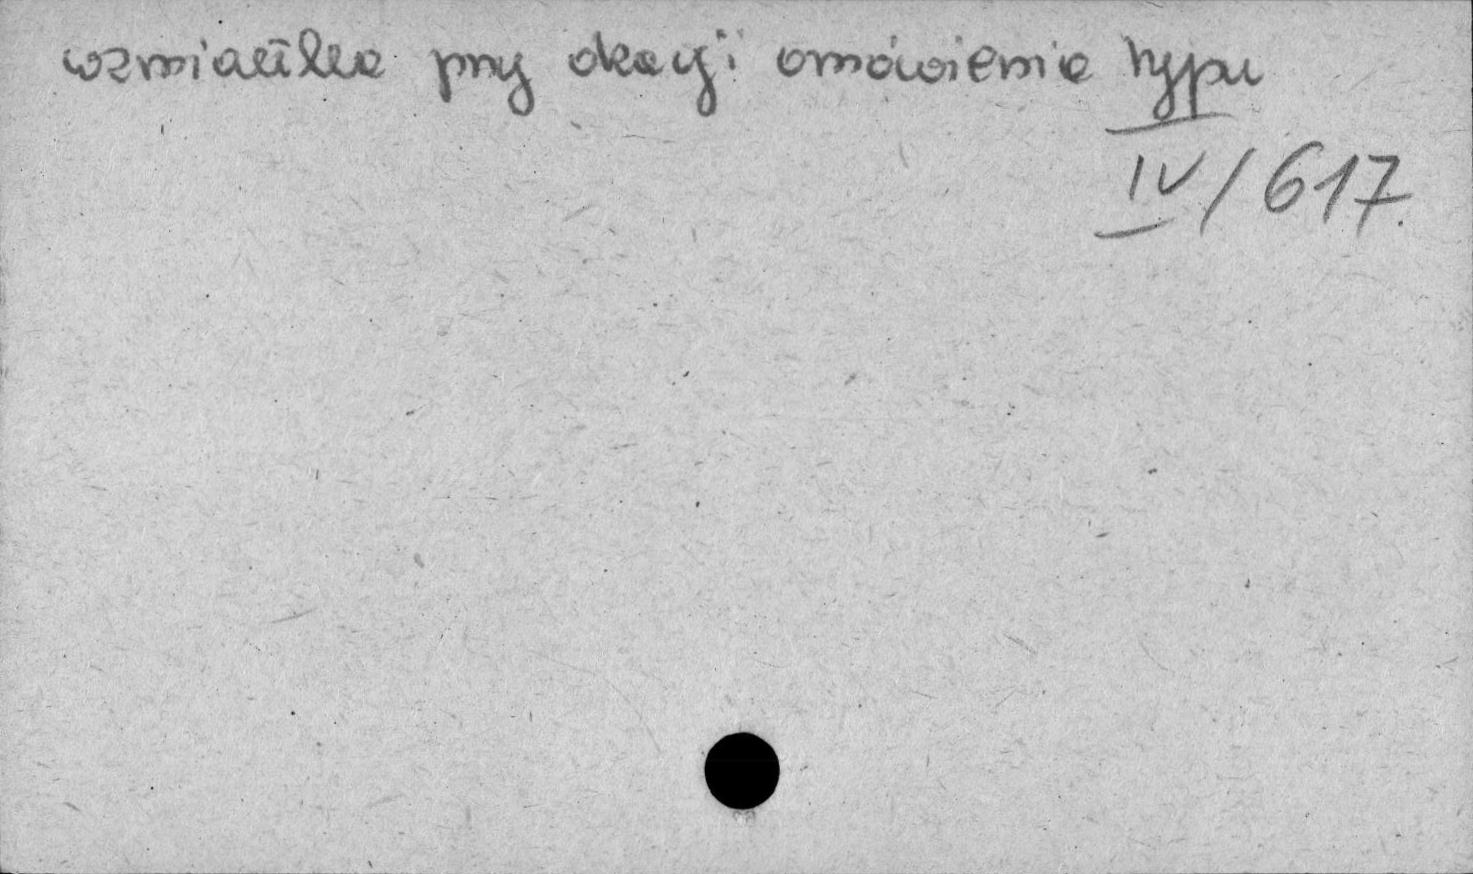 wzmianka przy okazji omówienia typu
IV/617.